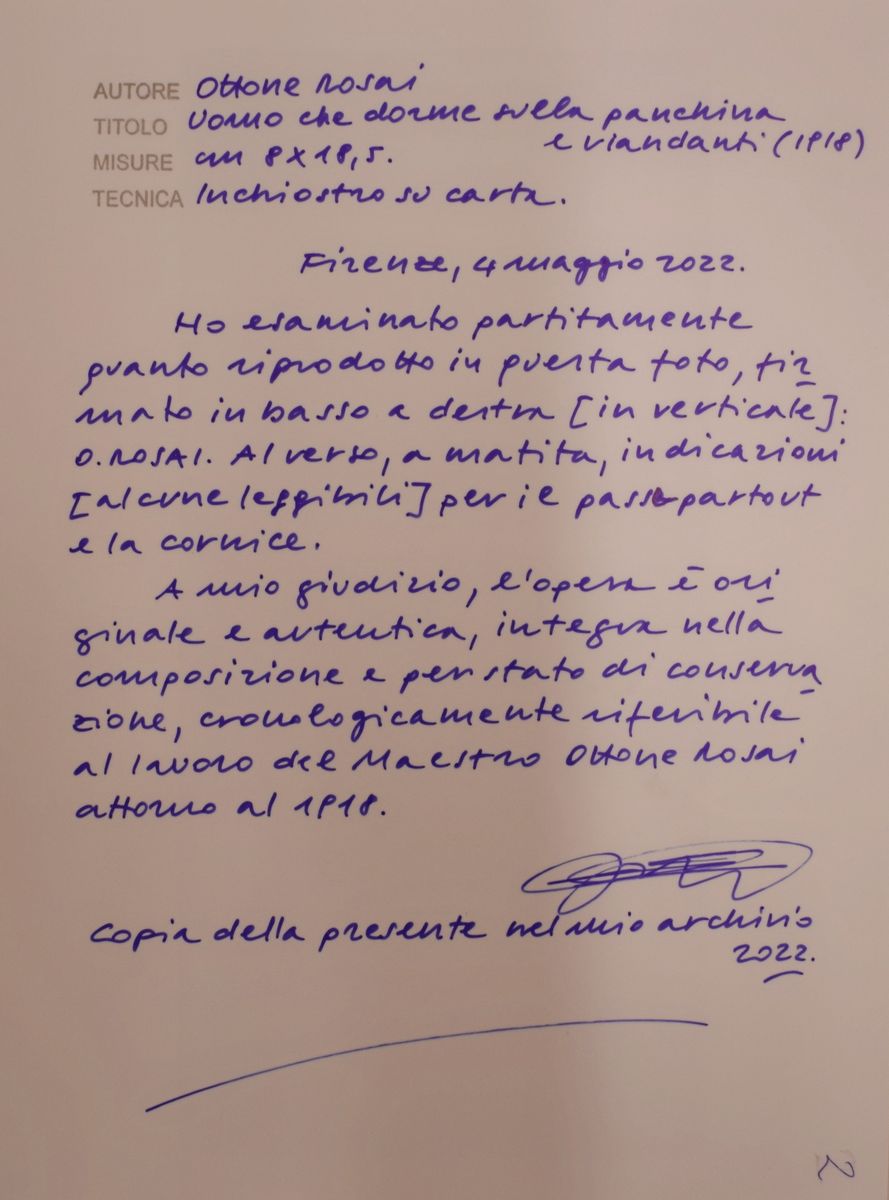 AUTORE Ottone Rosai
TITOLO Uomo che dorme sulla panchina
e viandanti (1918)
MISURE cm 8x18,5.
TECNICA Inchiostro su carta.
Firenze, 4 maggio 2022.
Ho esaminato partitamente
quanto riprodotto in questa foto, fir
mato in basso a destra [in verticale]:
O. ROSAI. Al verso, a matita, indicazioni
[alcune leggibili] per il passepartout
e la cornice.
A mio giudizio, l'opera è ori
ginale e autentica, integra nella
composizione e per stato di conserva
zione, cronologicamente riferibile
al lavoro del Maestro Ottone Rosai
attorno al 1918.
Copia della presente nel mio archivio
2022.